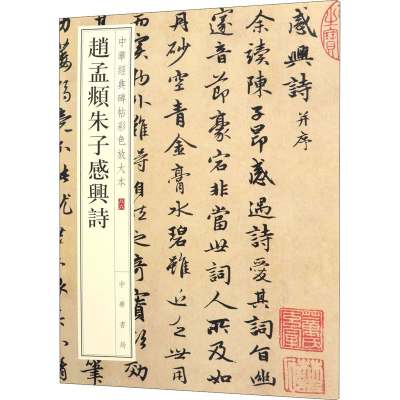 感興詩 并序
余讀陳子昂感遇詩愛其詞旨幽
邃音節豪宕非當世詞人所及如
丹砂空青金膏水碧雖近乏世用
而實物外難得自然之奇寶欲效
筆
中華經典碑帖彩色放大本
趙孟頫朱子感興詩
中華書局